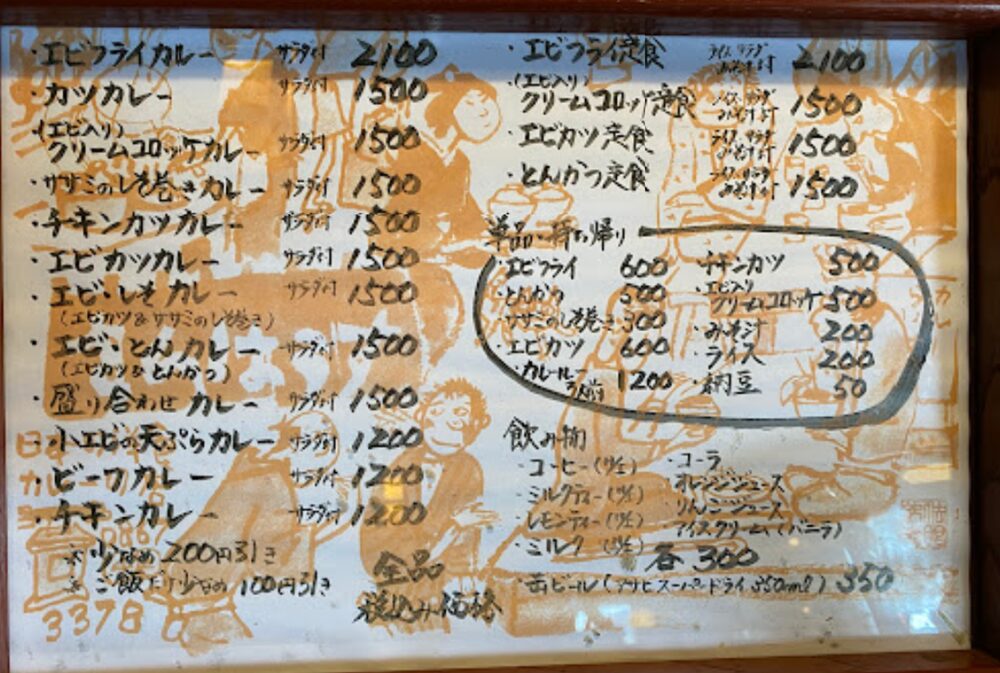 ・エビフライカレー サラダ付 2100
・カツカレー サラダ付 1500
・(エビ入り)
クリームコロッケカレー サラダ付 1500
・ササミのしそ巻きカレー サラダ付 1500
・チキンカツカレー サラダ付 1500
・エビカツカレー サラダ付 1500
・エビ・しそカレー サラダ付 1500
(エビカツ&ササミのしそ巻き)
・エビ・とんカレー サラダ付 1500
(エビカツ&とんかつ)
・盛り合わせカレー サラダ付 1500
・小エビの天ぷらカレー サラダ付 1200
・ビーフカレー サラダ付 1200
・チキンカレー サラダ付 1200
※少なめ200円引き
※ご飯だけ少なめ100円引き
全品
税込み価格
・エビフライ定食 ライス、サラダ みそ汁付 2100
・(エビ入り)
クリームコロッケ定食 ライス、サラダ みそ汁付 1500
・エビカツ定食 ライス、サラダ みそ汁付 1500
・とんかつ定食 ライス、サラダ みそ汁付 1500
単品・持ち帰り
・エビフライ 600
・とんかつ 500
・ササミのしそ巻き 300
・エビカツ 600
・カレールー 1人前 1200
・チキンカツ 500
・エビ入り
クリームコロッケ 500
・みそ汁 200
・ライス 200
・納豆 50
飲み物
・コーヒー(H/I)
・ミルクティー(H/I)
・レモンティー(H/I)
・ミルク(H/I)
・コーラ
・オレンジジュース
・りんごジュース
・アイスクリーム(バニラ)
各300
・缶ビール(アサヒスーパードライ350ml) 350
3378